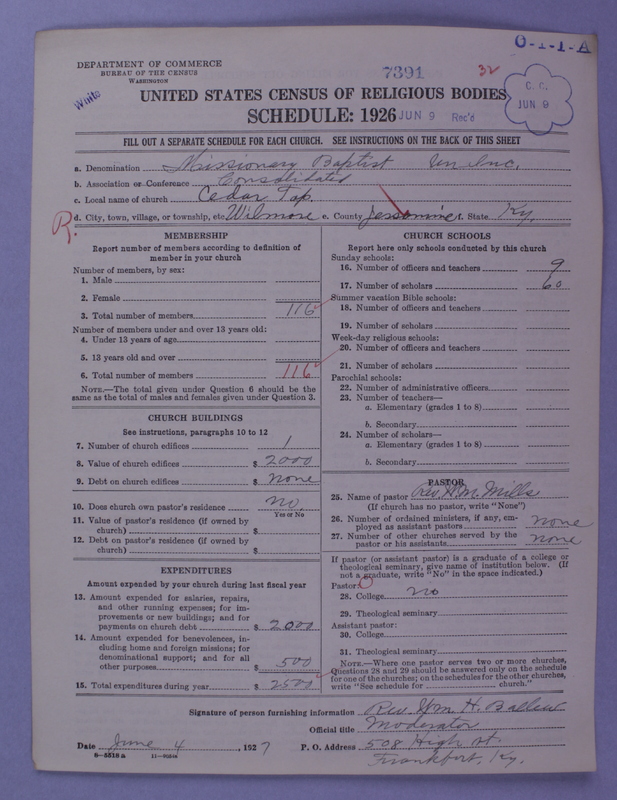 O-1-1-A
DEPARTMENT OF COMMERCE
BUREAU OF THE CENSUS
WASHINGTON
7391
32
C. C.
JUN 9
White
UNITED STATES CENSUS OF RELIGIOUS BODIES
SCHEDULE: 1926 JUN 9 Rec'd
FILL OUT A SEPARATE SCHEDULE FOR EACH CHURCH. SEE INSTRUCTIONS ON THE BACK OF THIS SHEET
a. Denomination Missionary Baptist Inc.
b. Association or Conference Consolidated
c. Local name of church Cedar Top
R. d. City, town, village, or township, etc. Wilmore e. County Jessamine f. State Ky.
MEMBERSHIP
Report number of members according to definition of
member in your church
Number of members, by sex:
1. Male
2. Female
3. Total number of members 116
Number of members under and over 13 years old:
4. Under 13 years of age
5. 13 years old and over
6. Total number of members 116
NOTE.—The total given under Question 6 should be the
same as the total of males and females given under Question 3.
CHURCH BUILDINGS
See instructions, paragraphs 10 to 12
7. Number of church edifices 1
8. Value of church edifices $ 2000
9. Debt on church edifices $ none
10. Does church own pastor's residence no
Yes or No
11. Value of pastor's residence (if owned by
church) $
12. Debt on pastor's residence (if owned by
church) $
EXPENDITURES
Amount expended by your church during last fiscal year
13. Amount expended for salaries, repairs,
and other running expenses; for im-
provements or new buildings; and for
payments on church debt $ 2000
14. Amount expended for benevolences, in-
cluding home and foreign missions; for
denominational support; and for all
other purposes $ 500
15. Total expenditures during year $ 2500
CHURCH SCHOOLS
Report here only schools conducted by this church
Sunday schools:
16. Number of officers and teachers 9
17. Number of scholars 60
Summer vacation Bible schools:
18. Number of officers and teachers
19. Number of scholars
Week-day religious schools:
20. Number of officers and teachers
21. Number of scholars
Parochial schools:
22. Number of administrative officers
23. Number of teachers—
a. Elementary (grades 1 to 8)
b. Secondary
24. Number of scholars—
a. Elementary (grades 1 to 8)
b. Secondary
PASTOR
25. Name of pastor Rev. Mills
(If church has no pastor, write "None")
26. Number of ordained ministers, if any, em-
ployed as assistant pastors none
27. Number of other churches served by the
pastor or his assistants none
If pastor (or assistant pastor) is a graduate of a college or
theological seminary, give name of institution below. (If
not a graduate, write "No" in the space indicated.)
Pastor: O
28. College no
29. Theological seminary
Assistant pastor:
30. College
31. Theological seminary
NOTE.—Where one pastor serves two or more churches,
Questions 28 and 29 should be answered only on the schedule
for one of the churches; on the schedules for the other churches,
write "See schedule for church."
Signature of person furnishing information Rev. Wm. H. Ballew
Official title Moderator
Date June 4, 1927 P. O. Address 508 High St.
Frankfort, Ky.